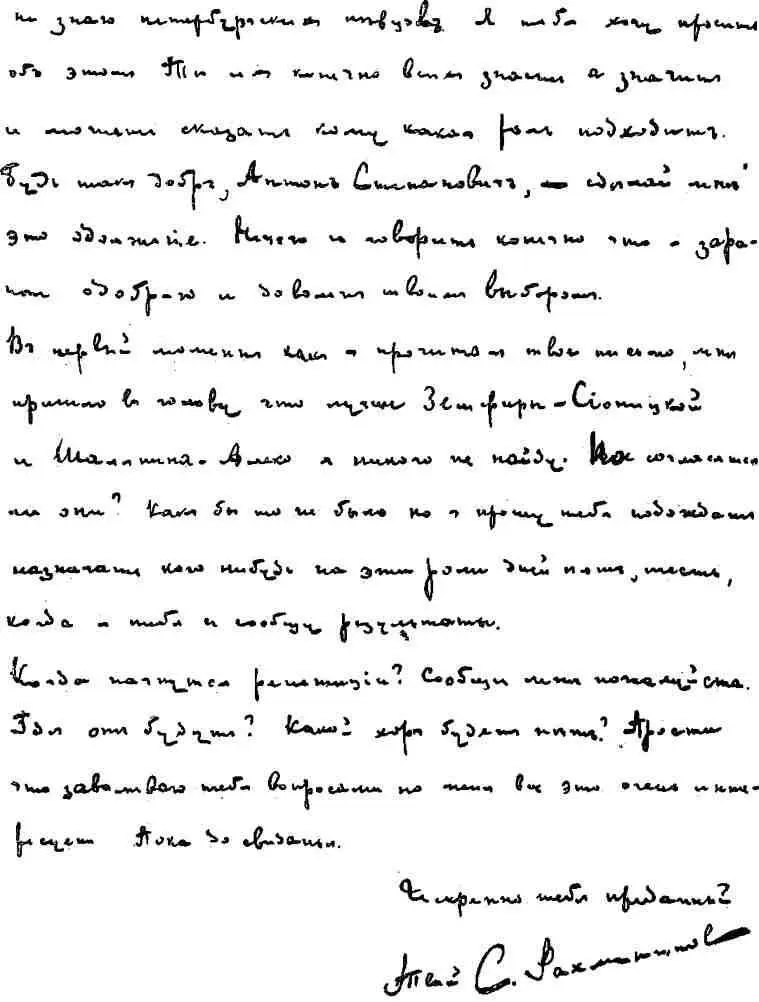 не знаю петербургскихъ пѣвцовъ. Я тебя хочу просить
объ этомъ. Ты ихъ конечно всѣхъ знаешь а значитъ
и можешь сказать кому какая роль подходитъ.
Будь такъ добръ, Антонъ Степановичъ, – сдѣлай мнѣ
это одолженіе. Нечего и говорить конечно что я зара-
нѣе одобряю и доволенъ твоимъ выборомъ.
Въ первый моментъ какъ я прочиталъ твое письмо, мнѣ
пришло въ голову что лучше Земфиры-Сіоницкой
и Шаляпина-Алеко я никого не найду. Но согласятся
ли они? Какъ бы то не было но я прошу тебя подождать
назначать кого нибудь на эти роли дней пять, шесть,
когда я тебѣ и сообщу результаты.
Когда начнутся репетиціи? Сообщи мнѣ пожалуйста.
Гдѣ они будутъ? Какой хоръ будетъ пѣть? Прости
что заваливаю тебя вопросами но меня все это очень инте-
ресуетъ. Пока до свиданья.
Искренно тебѣ преданный
Твой С. Рахманиновъ